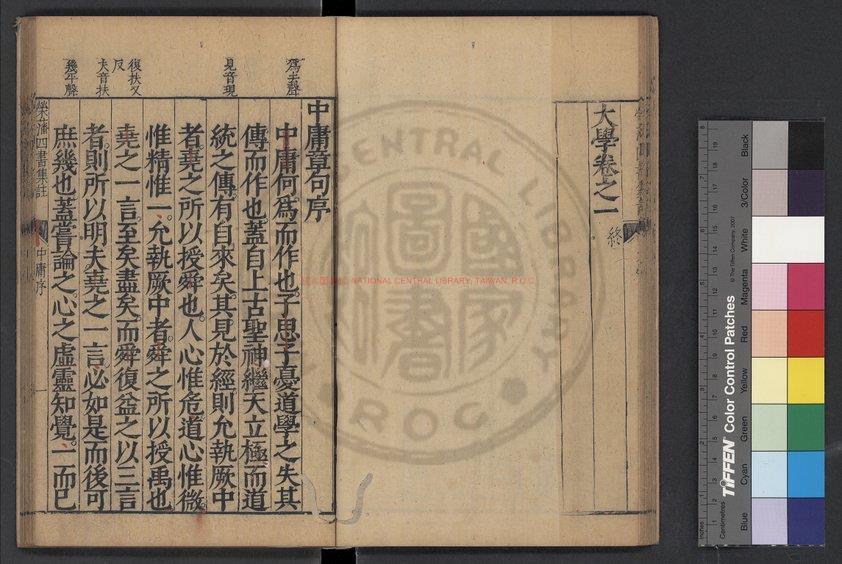 大學卷之一
終
爲去聲
見音現
復扶又
反
夫音扶
幾平聲
中庸章句序
中庸何爲而作也子思子憂道學之失其
傳而作也蓋自上古聖神繼天立極而道
統之傳有自來矣其見於經則允執厥中
者堯之所以授舜也人心惟危道心惟微
惟精惟一允執厥中者舜之所以授禹也
堯之一言至矣盡矣而舜復益之以三言
者則所以明夫堯之一言必如是而後可
庶幾也蓋嘗論之心之虛靈知覺一而已
四書集註
中庸序
國家圖書
NATIONAL CENTRAL LIBRARY, TAIWAN, R.O.C
CENTRAL LIBRARY
TIFFEN Color Control Patches
© The Tiffen Company, 2007
Centimetres
Inches
Blue
Cyan
Green
Yellow
Red
Magenta
White
3/Color
Black